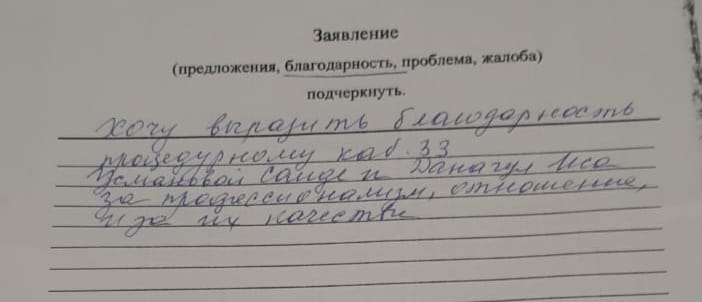 Заявление
(предложения, благодарность, проблема, жалоба)
подчеркнуть.
Хочу выразить благодарность
процедурному каб. 33
Усмановой Саиде и Данагул Иса
за профессионализм, отношение,
и за их качества